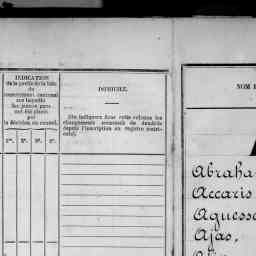 INDICATION
de la partie de la liste
du
recensement cantonal
sur laquelle
les jeunes gens
ont été placés
par
la décision du conseil.
1re.
2e.
3e.
4e.
DOMICILE.
(On indiquera dans cette colonne les
changements successifs de domicile
depuis l'inscription au registre matri-
cule).
NOM
Abraha
Accaris
Aguess
Ajas,